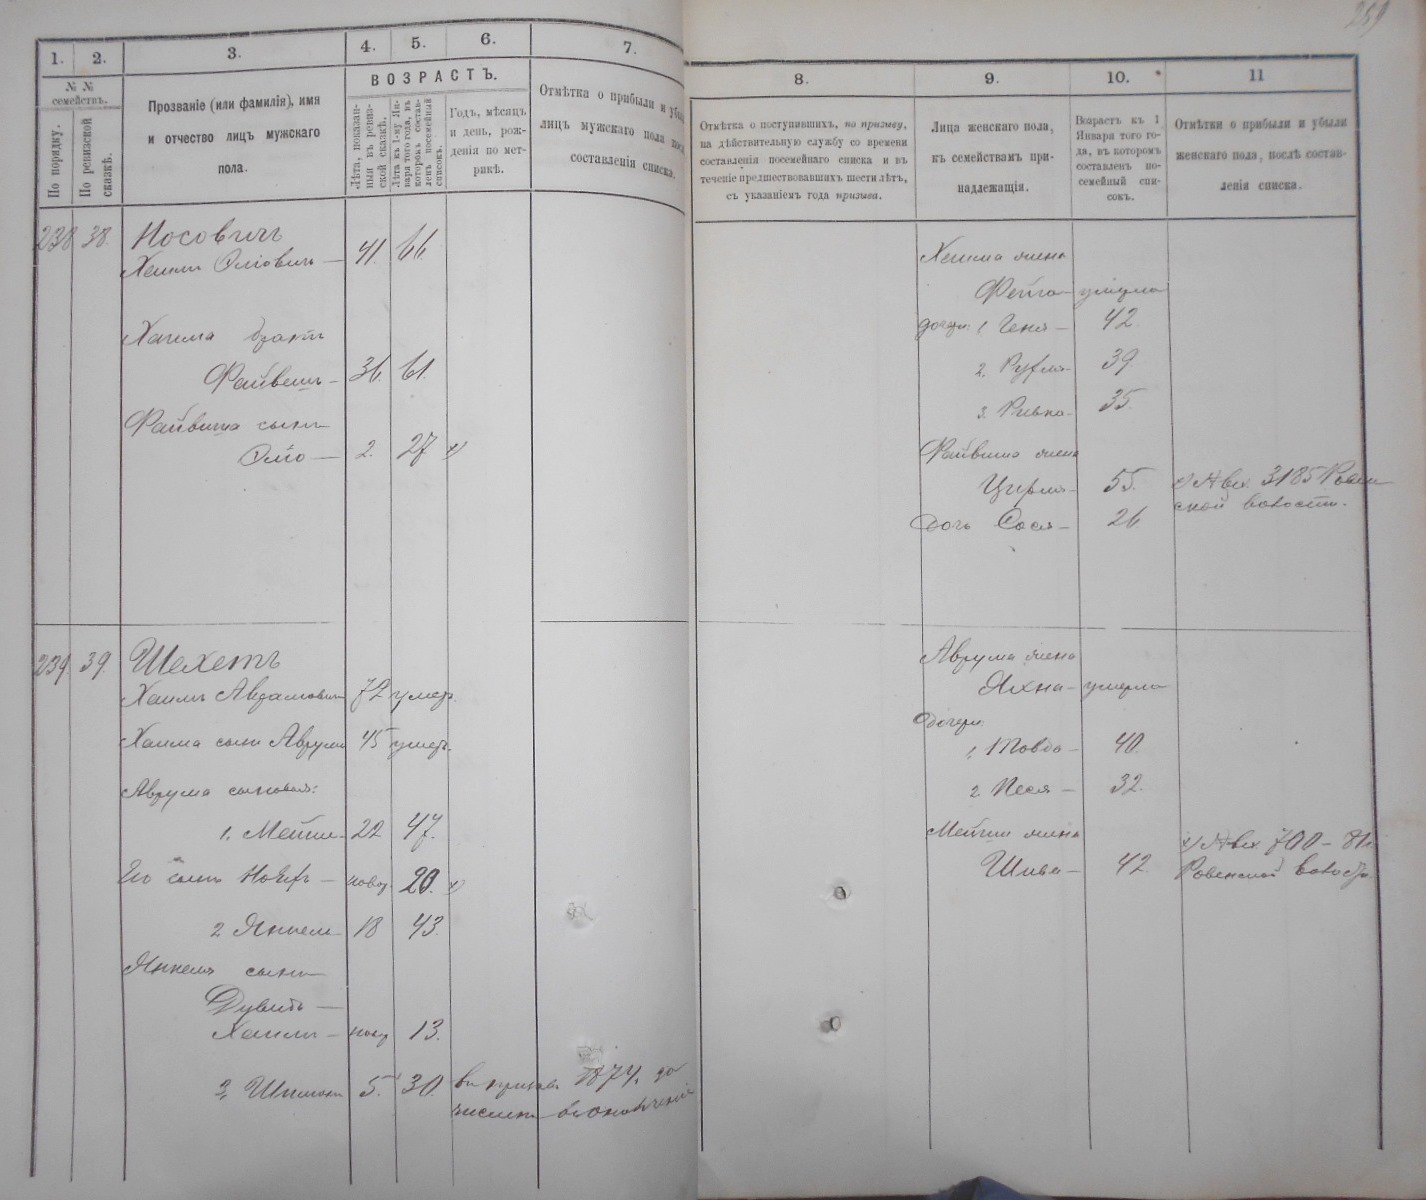 259
1. 2. 3. 4. 5. 6. 7.
№ № семействъ.
По порядку.
По ревизской сказкѣ.
Прозваніе (или фамилія), имя
и отчество лицъ мужскаго
пола.
ВОЗРАСТЪ.
Лѣта, показан-
ныя въ ревиз-
ской сказкѣ.
Лѣта къ 1-му Ян-
варя того года, въ
которомъ состав-
ленъ посемейный
списокъ.
Годъ, мѣсяцъ
и день, рож-
денія по мет-
рикѣ.
Отмѣтка о прибыли и убыли
лицъ мужскаго пола послѣ
составленія списка.
238 38. Носовичъ
Хаимъ Оліовичъ — 41. 66.
Хаима братъ
Файвишъ — 36. 61.
Файвиша сынъ
Оліо — 2. 27
239 39. Шехетъ
Хаимъ Авдамовичъ 72 умер.
Хаима сынъ Аврумъ 45 умер.
Аврума сыновья:
1, Мейши — 22 47.
Его сынъ — новор. 20.
2 Янкель — 18 43.
Янкеля сынъ
Дувидъ —
Хаимъ — новор 13.
3, Шимонъ 5. 30. 1874.
8. 9. 10. 11
Отмѣтка о поступившихъ, по призыву,
на дѣйствительную службу со времени
составленія посемейнаго списка и въ
теченіе предшествовавшихъ шести лѣтъ,
съ указаніемъ года призыва.
Лица женскаго пола,
къ семействамъ при-
надлежащія.
Возрастъ къ 1
Января того го-
да, въ которомъ
составленъ по-
семейный спи-
сокъ.
Отмѣтки о прибыли и убыли
женскаго пола, послѣ состав-
ленія списка.
Хаима жена
Фейга — умерла
дочери: 1 Геня — 42.
2, Рухля — 39
3. Ривка — 35.
Файвиша жена
Цирля — 55. 3185
ской волости.
Дочь Сося — 26
Аврума жена
Яхна — умерла
Дочери:
1, Товба — 40.
2. Песя — 32.
Мейши жена 700
Шива — 42. Ровенской волости